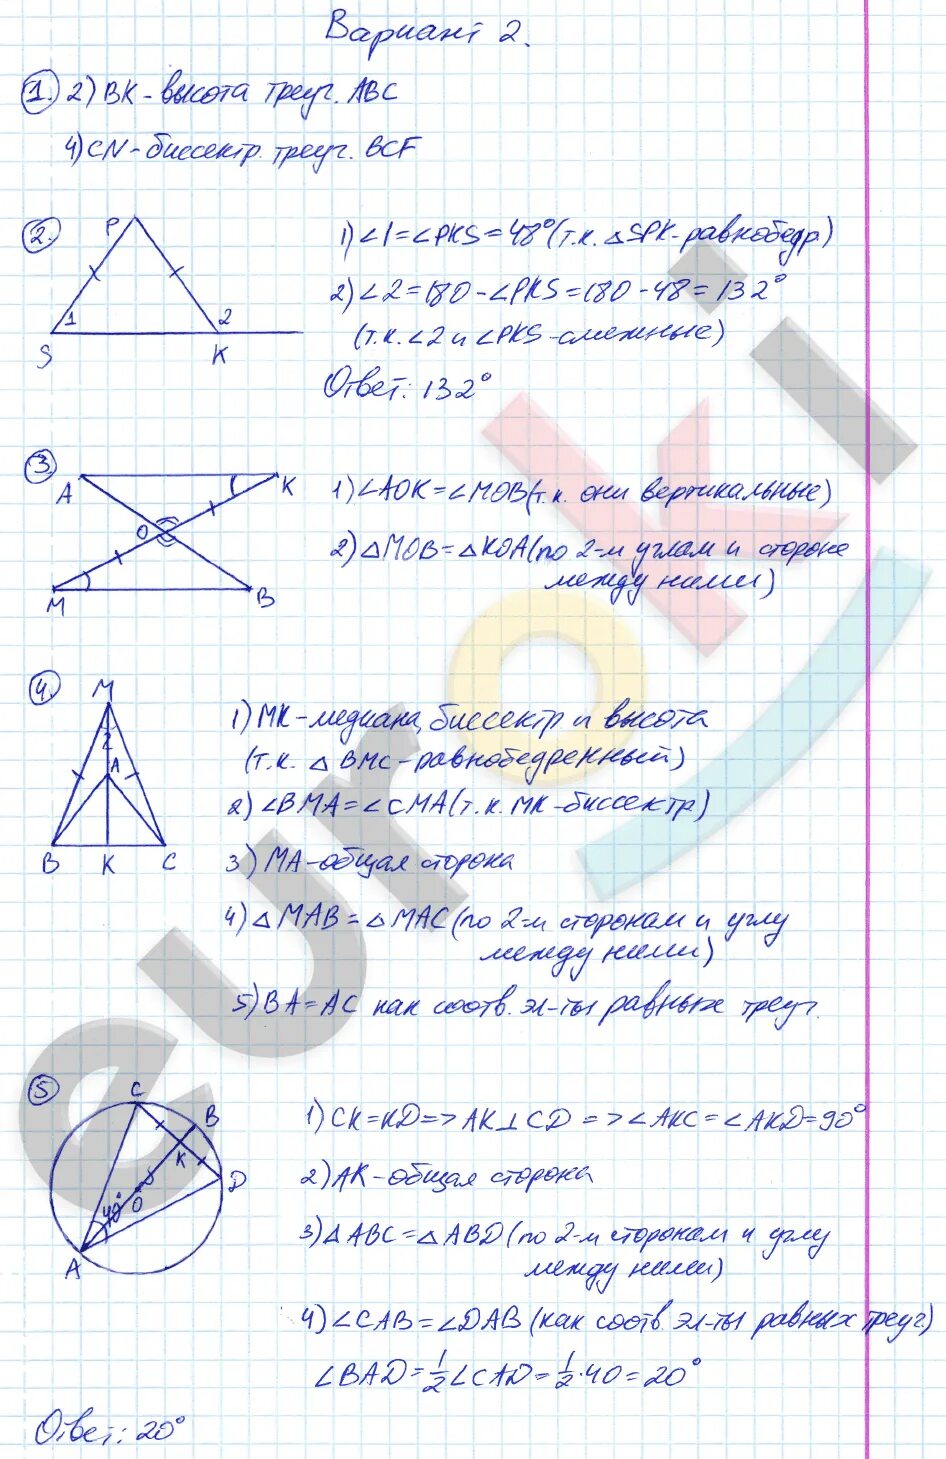 Вариант 2.
1. 2) BK - высота треуг. ABC
4) CN - биссектр. треуг. BCF
2.
P
1 2
S K
1) ∠1 = ∠PKS = 48° (т.к. △SPK - равнобедр.)
2) ∠2 = 180 - ∠PKS = 180 - 48 = 132°
(т.к. ∠2 и ∠PKS - смежные)
Ответ: 132°
3.
A K
O
M B
1) ∠AOK = ∠MOB (т.к. они вертикальные)
2) △MOB = △KOA (по 2-м углам и стороне
между ними)
4.
M
2
A
B K C
1) MK - медиана, биссектр и высота
(т.к. △BMC - равнобедренный)
2) ∠BMA = ∠CMA (т.к. MK - биссектр)
3) MA - общая сторона
4) △MAB = △MAC (по 2-м сторонам и углу
между ними)
5) BA = AC как соотв. эл-ты равных треуг.
5
C
B
K
D
40° O
A
1) CK = KD => AK ⊥ CD => ∠AKC = ∠AKD = 90°
2) AK - общая сторона
3) △ABC = △ABD (по 2-м сторонам и углу
между ними)
4) ∠CAB = ∠DAB (как соотв. эл-ты равных треуг)
∠BAD = 1/2 ∠CAD = 1/2 · 40 = 20°
Ответ: 20°
euroki